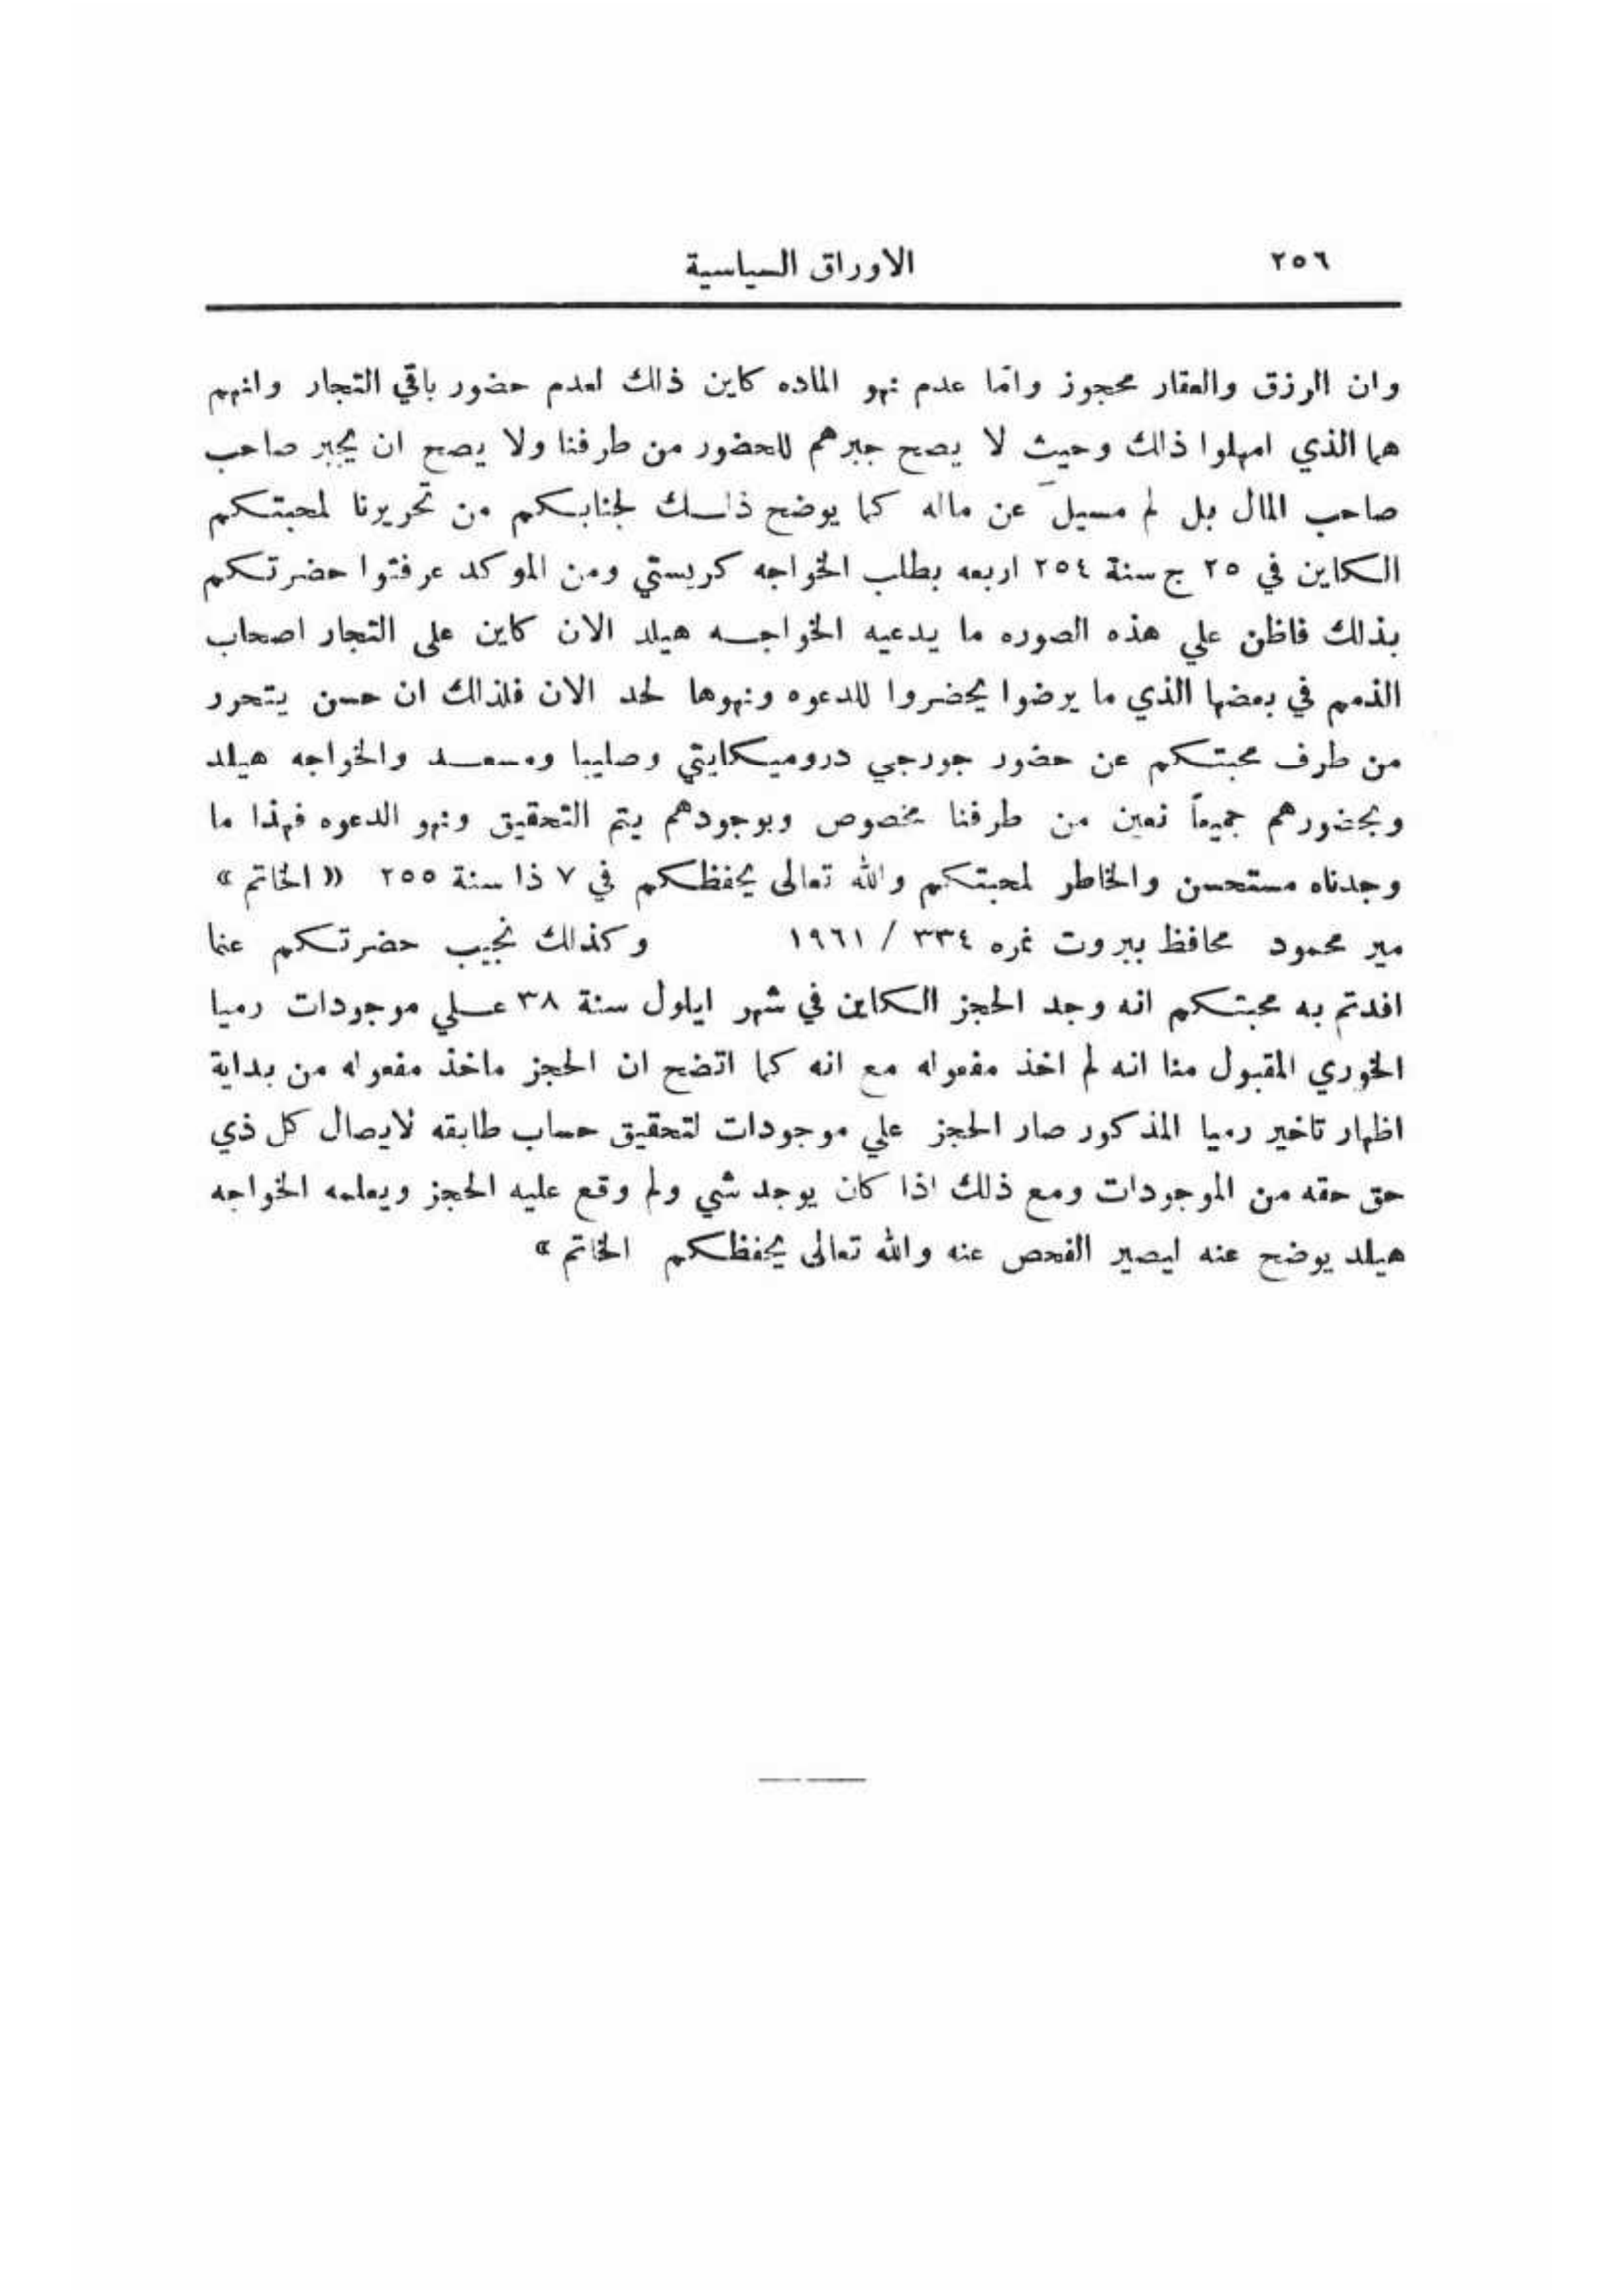 ٢٥٦ الاوراق السياسية
وان الرزق والعقار محجوز وانما عدم نهو الماده كاين ذلك لعدم حضور باقي التجار وانهم
هما الذي امهلوا ذلك وحيث لا يصح جبرهم للحضور من طرفنا ولا يصح ان يجبر صاحب
صاحب المال بل لم مسيل عن ماله كما يوضح ذلك لجنابكم من تحريرنا لمحبتكم
الكاين في ٢٥ ج سنة ٢٥٤ اربعه بطلب الخواجه كريستي ومن الموكد عرفتوا حضرتكم
بذلك فاظن علي هذه الصوره ما يدعيه الخواجه هيلد الان كاين على التجار اصحاب
الذمم في بعضها الذي ما يرضوا يحضروا للدعوه ونهوها لحد الان فلذلك ان حسن يتحرر
من طرف محبتكم عن حضور جورجي دروميكايتي وصليبا ومسعد والخواجه هيلد
وبحضورهم جميعاً نعين من طرفنا مخصوص وبوجودهم يتم التحقيق ونهو الدعوه فهذا ما
وجدناه مستحسن والخاطر لمحبتكم والله تعالى يحفظكم في ٧ ذا سنة ٢٥٥ « الخاتم »
مير محمود محافظ بيروت نمره ٣٣٤ / ١٩٦١ وكذلك نجيب حضرتكم عنما
افدتم به محبتكم انه وجد الحجز الكاين في شهر ايلول سنة ٣٨ علي موجودات رميا
الخوري المقبول منا انه لم اخذ مفعوله مع انه كما اتضح ان الحجز ماخذ مفعوله من بداية
اظهار تاخير رميا المذكور صار الحجز علي موجودات لتحقيق حساب طابقه لايصال كل ذي
حق حقه من الموجودات ومع ذلك اذا كان يوجد شي ولم وقع عليه الحجز ويعلمه الخواجه
هيلد يوضح عنه ليصير الفحص عنه والله تعالى يحفظكم الخاتم »